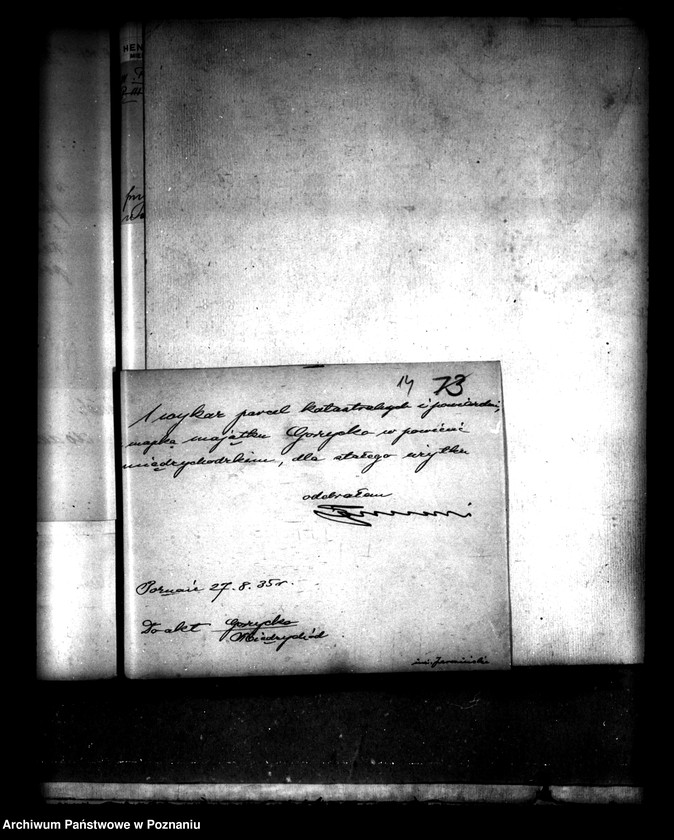 HEN
14 73
1 wykaz parcel katastralnych i
mapkę majątku Gorycko w powiecie
międzychodzkim, dla stałego użytku
odebrałem
Poznań 27.8.35 r.
Do akt Gorycko
Międzychód
Archiwum Państwowe w Poznaniu